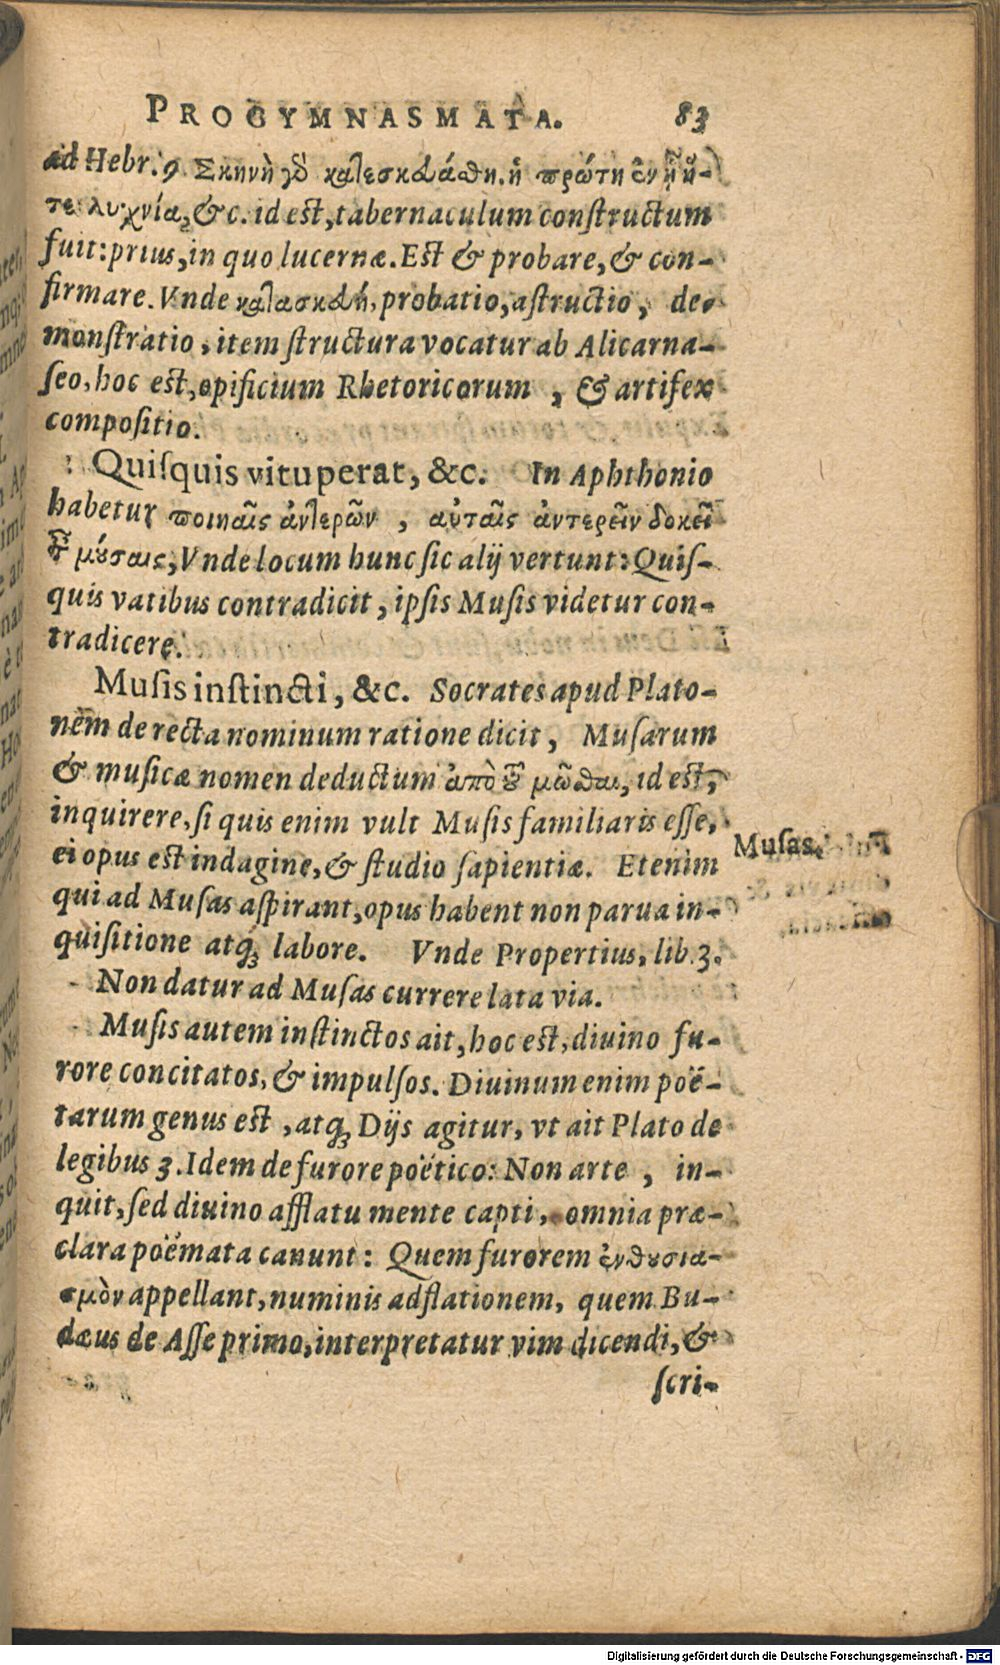 PROGYMNASMATA. 83
ad Hebr. 9 Σκηνὴ γὸ κατεσκευάσθη. ἡ πρώτη ἐν ᾗ ἥ-
τε λυχνία, & c. id est, tabernaculum constructum
fuit: prius, in quo lucernæ. Est & probare, & con-
firmare. Vnde κατασκευή, probatio, astructio, de-
monstratio, item structura vocatur ab Alicarna-
seo, hoc est, opificium Rhetoricorum, & artifex
compositio.
Quisquis vituperat, &c. In Aphthonio
habetur ποιηταῖς ἀντερῶν, αὐταῖς ἀντερεῖν δοκεῖ
μούσαις, Vnde locum hunc sic alij vertunt: Quis-
quis vatibus contradicit, ipsis Musis videtur con-
tradicere.
Musis instincti, &c. Socrates apud Plato-
nem de recta nominum ratione dicit, Musarum
& musicæ nomen deductum ἀπὸ τοῦ μῶσθαι, id est,
inquirere, si quis enim vult Musis familiaris esse,
ei opus est indagine, & studio sapientiæ. Etenim
Musas.
qui ad Musas aspirant, opus habent non parua in-
quisitione atq; labore. Vnde Propertius, lib. 3.
Non datur ad Musas currere lata via.
Musis autem instinctos ait, hoc est, diuino fu-
rore concitatos, & impulsos. Diuinum enim poë-
tarum genus est, atq; Dijs agitur, vt ait Plato de
legibus 3. Idem de furore poëtico: Non arte, in-
quit, sed diuino afflatu mente capti, omnia præ-
clara poëmata canunt: Quem furorem ἐνθουσια-
σμὸν appellant, numinis adflationem, quem Bu-
dæus de Asse primo, interpretatur vim dicendi, &
scri-
Digitalisierung gefördert durch die Deutsche Forschungsgemeinschaft - DFG